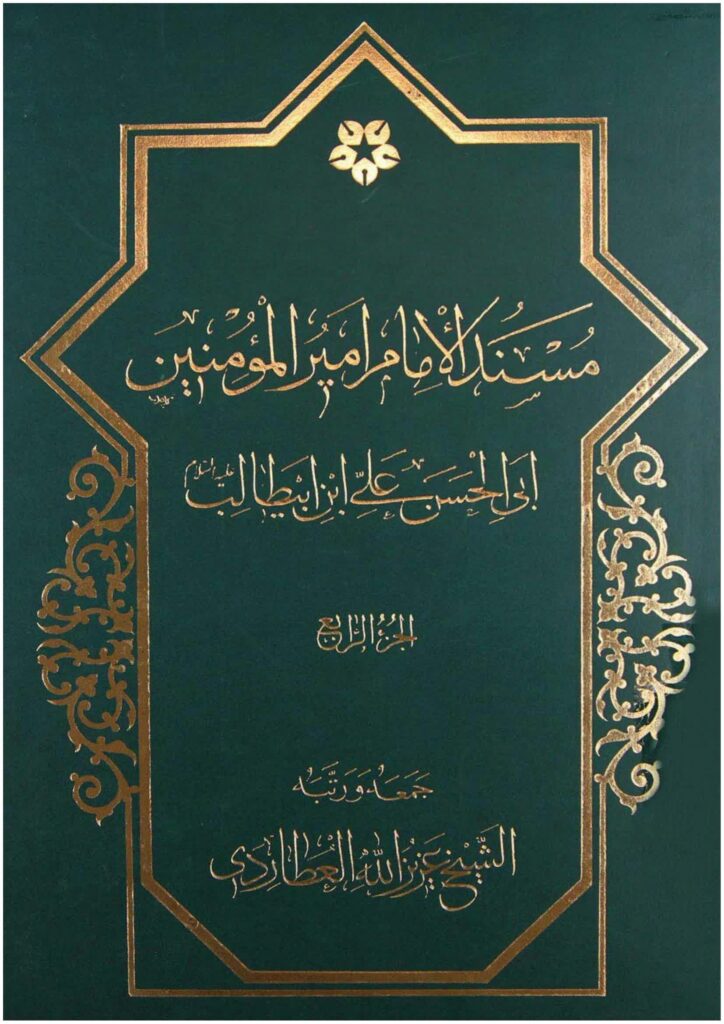 مُسْنَدُ الْإِمَامِ اَمِيرِ الْمُؤْمِنِين
اَبِي الْحَسَنِ عَلِيِّ ابْنِ ابيطَالِب عليه السلام
الجُزءُ الرَّابِع
جَمَعَهُ وَرَتَّبَهُ
الشَّيْخ عَزِيزُ اللهِ الْعَطَارِدِي